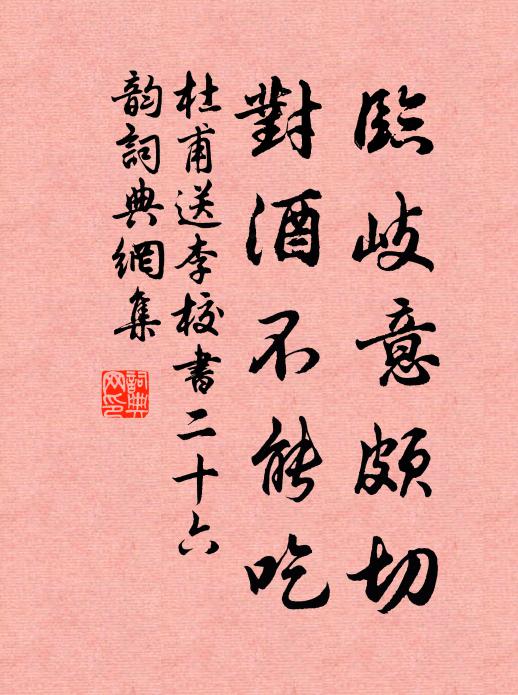 臨岐意頗切
對酒不能吃
杜甫送李校書二十六
韵詞典網集
詞典
网印